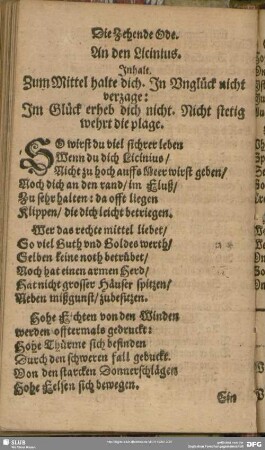 Die Zehende Ode.
An den Licinius.
Inhalt.
Zum Mittel halte dich. In Vnglück nicht
verzage:
Im Glück erheb dich nicht. Nicht stetig
wehrt die plage.
SO wirst du viel sichrer leben
Wenn du dich Licinius/
Nicht zu hoch auffs Meer wirst geben/
Noch dich an den rand/ im Fluß/
Zu sehr halten: da offt liegen
Klippen/ die dich leicht betriegen.
Wer das rechte mittel liebet/
So viel Guth vnd Goldes werth/
Selben keine noth betrübet/
Noch hat einen armen Herd/
Hat nicht grosser Häuser spitzen/
Neben mißgunst/ zubesitzen.
Hohe Fichten von den Winden
werden offtermals gedruckt:
Hohe Thürme sich befinden
Durch den schweren fall gebuckt.
Von den starcken Donnerschlägen
Hohe Felsen sich bewegen.
Ein
SLUB